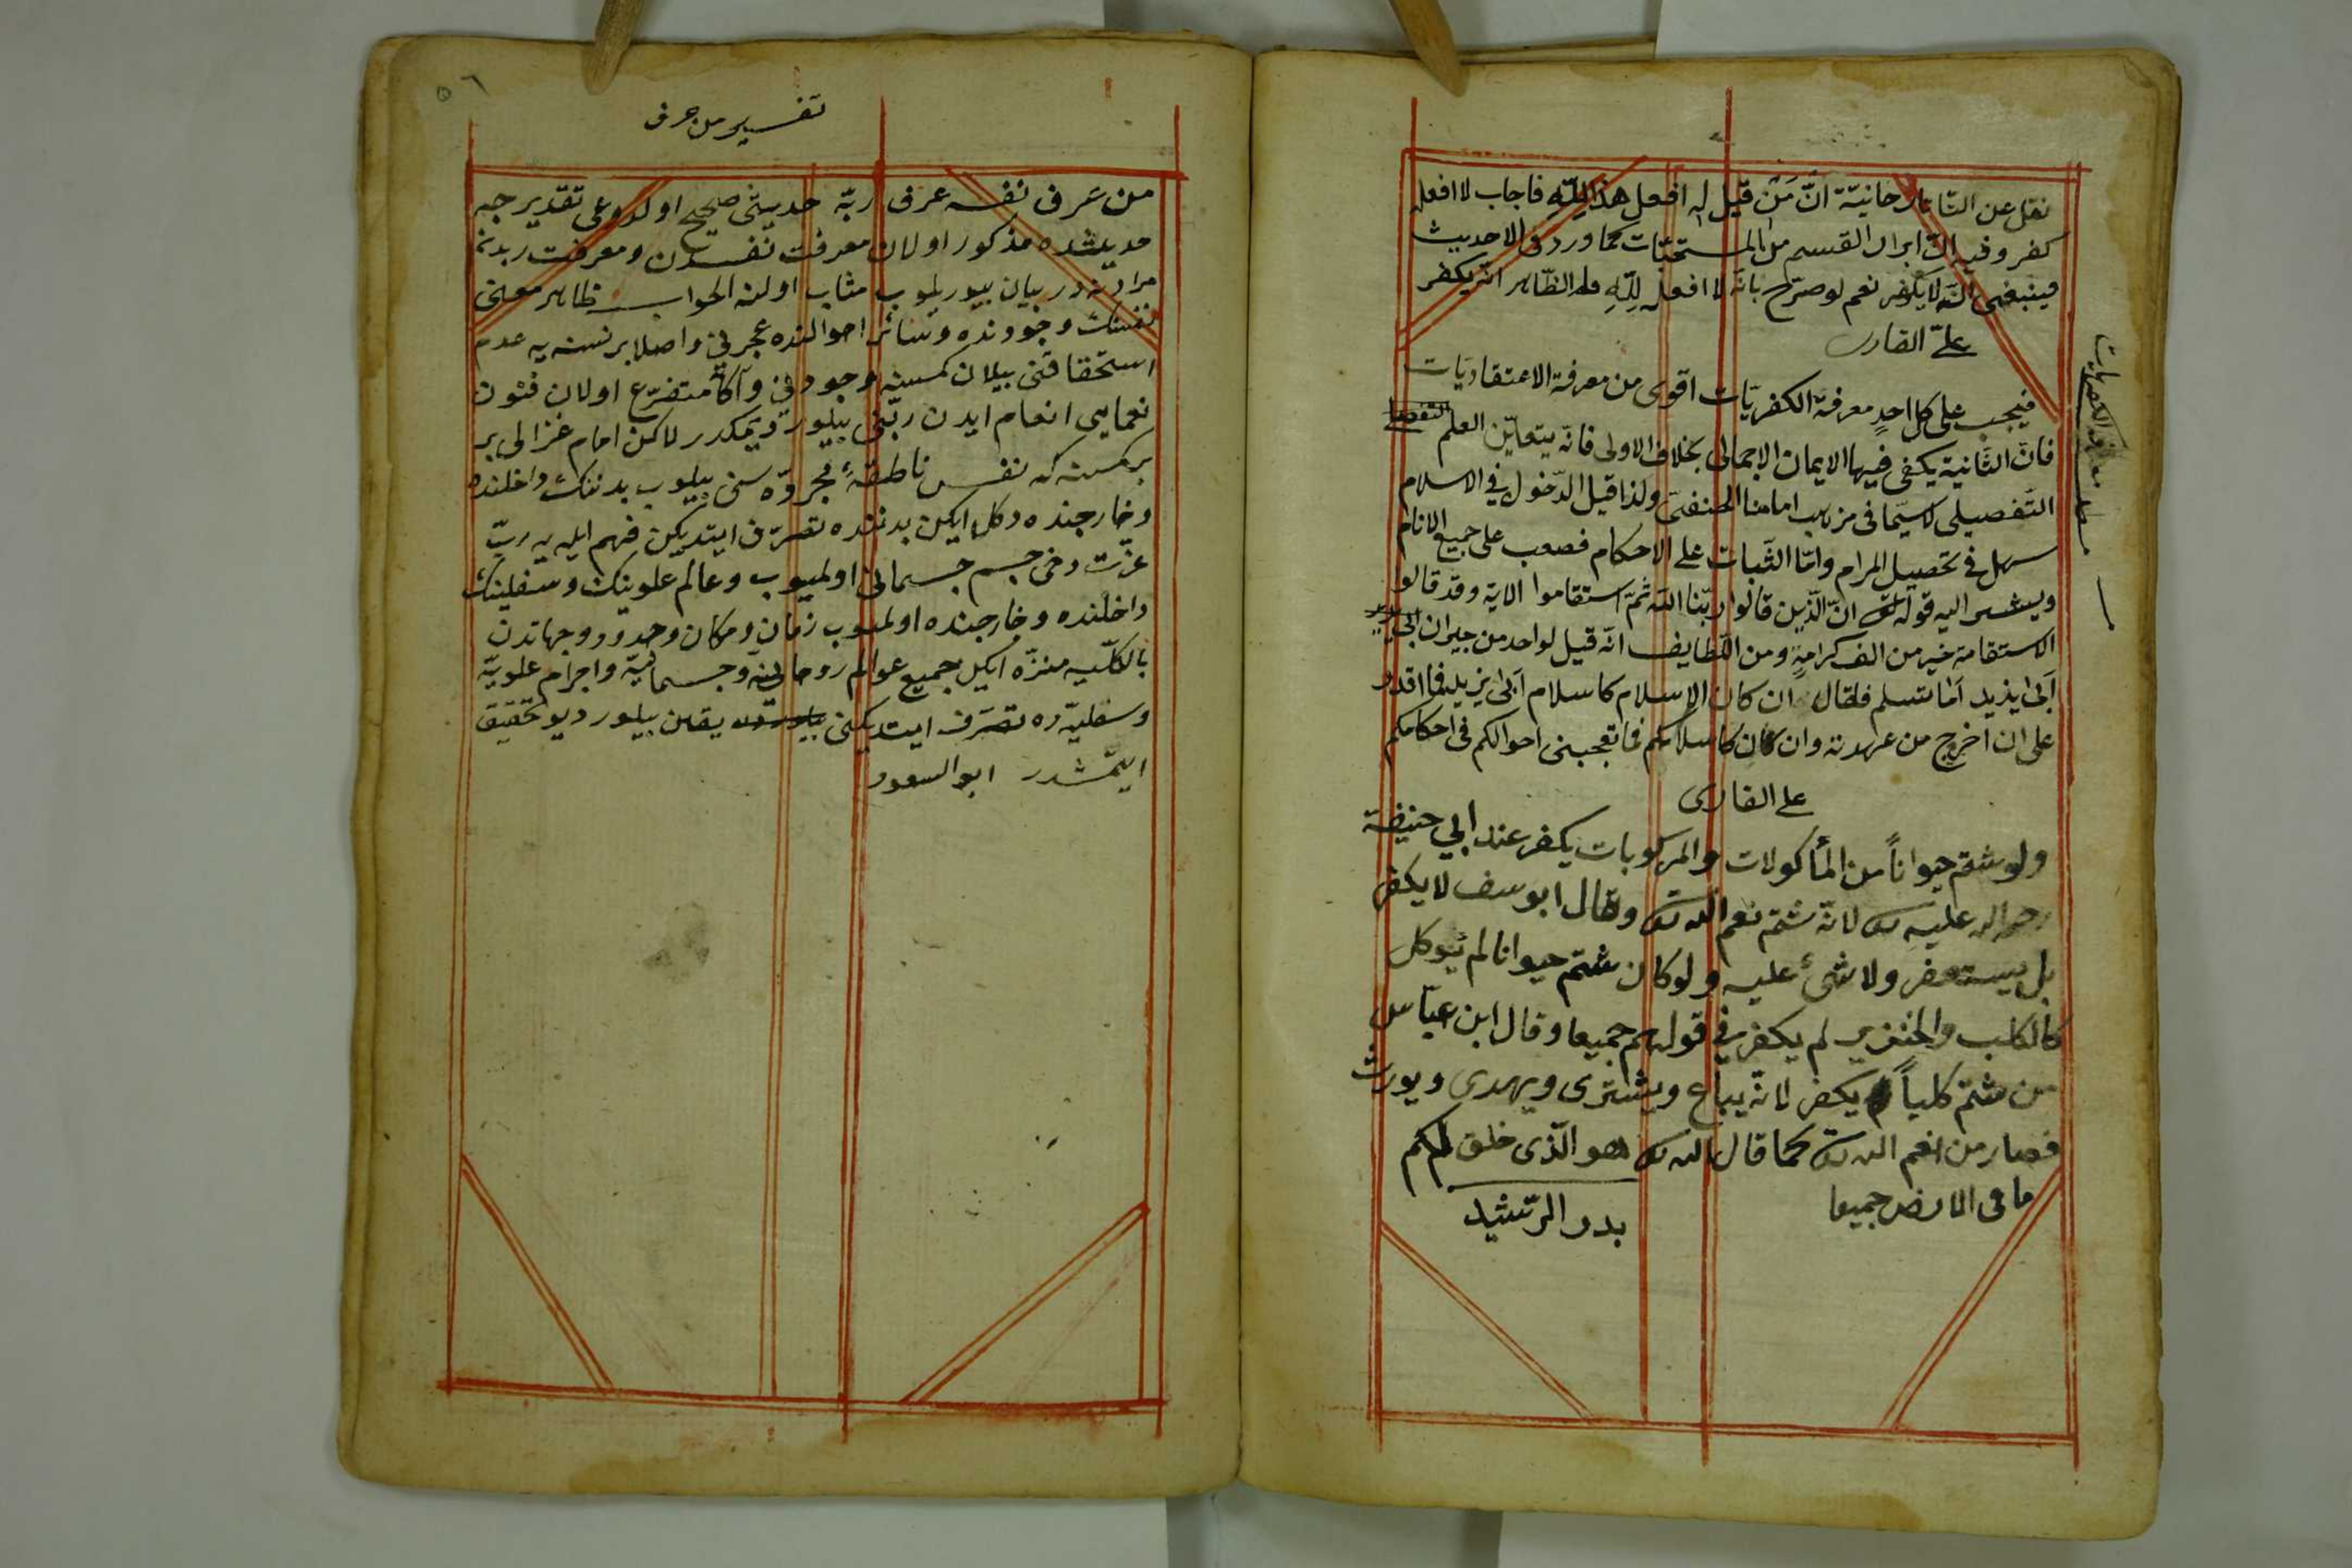 نقل عن التاتارخانيّة انّ مَن قيل له افعل هذا لِلّهِ فاجاب لا افعله
كفر وفيه انّ ابرار القسم من المستحبّات كما ورد فى الاحديث
فينبغى انّه لا يكفر نعم لو صرّح بانّه لا افعله لِلّهِ فالظّاهر انّه يكفر
علىّ القارى
فيجب على كل احدٍ معرفة الكفريّات اقوى من معرفة الاعتقاديّات
فانّ الثّانية يكفى فيها الايمان الاجمالى بخلاف الاولى فانّه يتعيّن العلم التفصيلى
التّفصيلى لا سيّما فى مذهب امامنا الحنفىّ ولذا قيل الدّخول في الاسلام
سهل في تحصيل المرام وامّا الثّبات على الاحكام فصعب على جميع الانام
ويشير اليه قوله تع انّ الّذين قالوا ربّنا اللّه ثمّ استقاموا الاية وقد قالوا
الاستقامة خير من الف كرامةٍ ومن اللّطايف انّه قيل لواحد من جيران ابى يزيد
ابى ايذيد اما تسلم فقال ان كان الاسلام كاسلام ابى يزيد فما اقدر
على ان اخرج من عهدته وان كان كاسلامكم فما تعجبنى احوالكم فى احكامكم
على القارى
ولو شتم حيواناً من المأكولات والمركوبات يكفر عند ابي حنيفة
رحمه الله عليه لانّه شتم نعم الله تع وقال ابو سف لا يكفر
بل يستغفر ولا شئ عليه ولو كان شتم حيوانا لم يؤكل
كالكلب والخنزير لم يكفر في قولهم جميعا وقال ابن عبّاس
من شتم كلباً يكفر لانّه يباع ويشترى ويهدى ويورث
فصار من نعم الله تع كما قال الله تع هو الّذى خلق لكم
ما فى الارض جميعا
بدر الرّشيد
مطلب معرفة الكفريات
٥٦
تفسير من عرف
من عَرف نفسه عرف ربّه حديثى صحيح اولدوغى تقدير جه
حديثده مذكور اولان معرفت نفسدن ومعرفت ربدن
مراد نه در بيان بيوريلوب مثاب اولنه الجواب ظاهر معنى
نفسنك وجودنده وسائر احوالنده عجزنى واصلا بر نسنه يه عدم
استحقاقنى بيلان كمسنه وجودنى واكا متفرّع اولان فنون
نعمايى انعام ايدن ربّنى بيلور ديمكدر لاكن امام غزالى بر
بر كمسنه كه نفس ناطقهٔ مجرّده سنى بيلوب بدننك داخلنده
وخارجنده دكل ايكن بدننده تصرّف ايتديكن فهم ايليه ربّ
عزّت دخى جسم جسمانى اولميوب وعالم علوينك وسفلينك
داخلنده وخارجنده اولميوب زمان ومكان وحدود وجهاتدن
بالكلّيه منزّه ايكن جميع عوالم روحانيّه وجسمانيّه واجرام علويّه
وسفليّه ده تصرّف ايتديكنى يقين بيلور ديو تحقيق
ايتمشدر ابو السعود